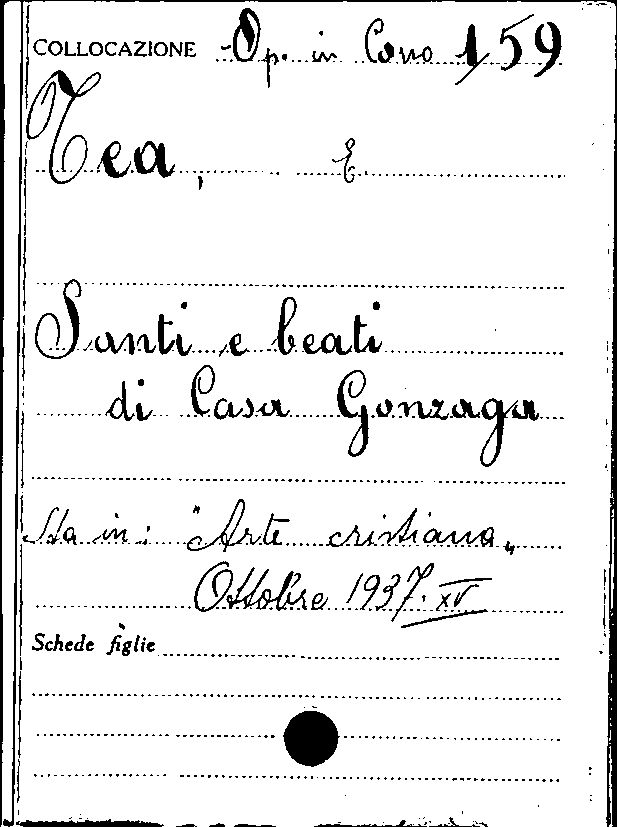 COLLOCAZIONE Op. in Cono 1/59
Tea, E.
Santi e beati
di Casa Gonzaga
Sta in: "Arte cristiana„
Ottobre 1937. XV
Schede figlie